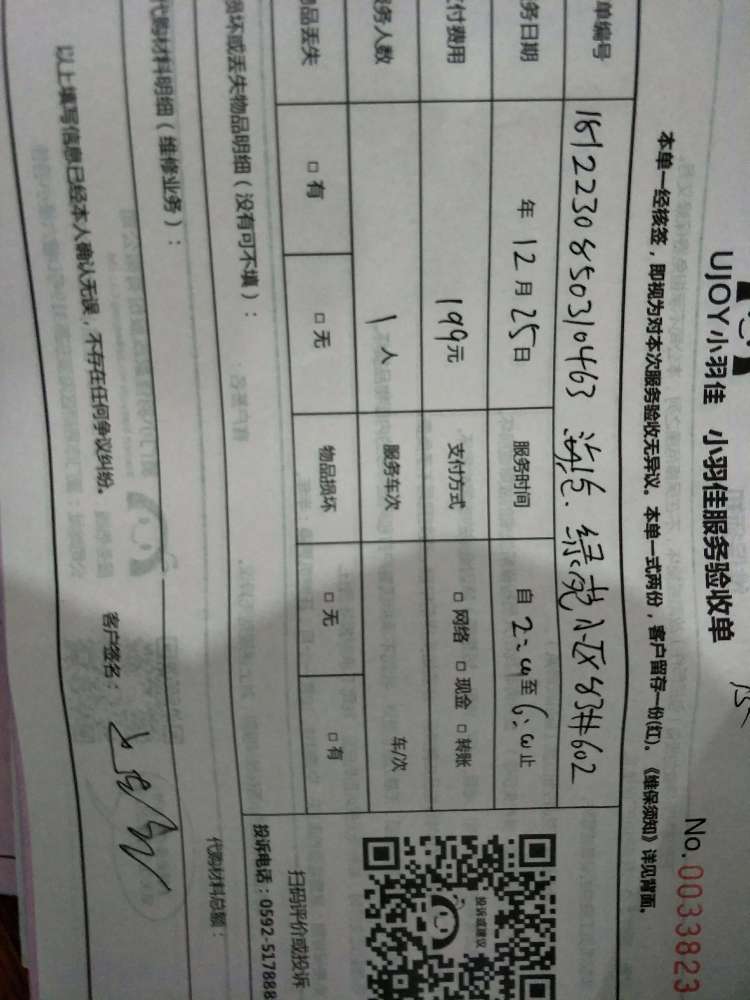 UJOY小羽佳 小羽佳服务验收单
No.0033823
本单一经核签，即视为对本次服务验收无异议。本单一式两份，客户留存一份(红)。《维保须知》详见背面。
单编号 1812230850310463 绿苑小区83#602
务日期 年12月25日 服务时间 自2:00至6:00止
付费用 199元 支付方式 □网络 □现金 □转账
服务人数 1人 服务车次 车/次
物品丢失 □有 □无 物品损坏 □无 □有
损坏或丢失物品明细（没有可不填）：
投诉或建议
扫码评价或投诉
投诉电话：0592-517888
代购材料明细（维修业务）：
代购材料总额：
以上填写信息已经本人确认无误，不存在任何争议纠纷。
客户签名：